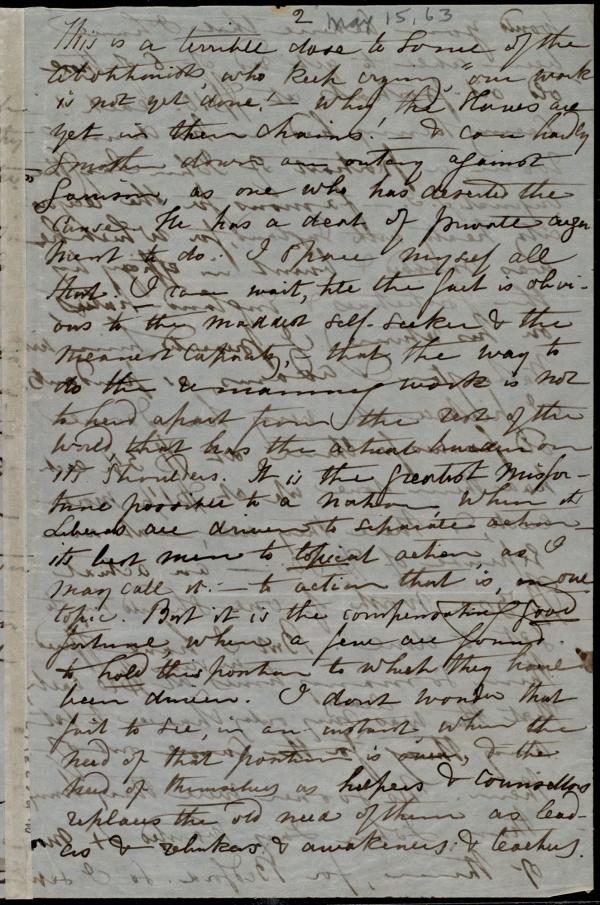 2 May 15, 63
This is a terrible dose to some of the
abolitionists, who keep crying "our work
is not yet done! — Why the slaves are
yet in their chains! & can hardly
smother down an outcry against
Garrison, as one who has deserted the
cause. He has a deal of private argu
ment to do. I spare myself all
that. I can wait, till the fact is obvi-
ous to the maddest self-seeker & the
meanest capacity, — that the way to
do the remaining work is not
to herd apart from the rest of the
world, that has the actual burden on
its shoulders. It is the greatest misfor-
tune possible to a nation, when its
Liberals are driven to separate action —
its best men to topical action as I
may call it: — to action that is, on one
topic. But it is the compensating good
fortune when a few are found
to hold this position to which they have
been driven. I don't wonder that
fail to see, in an instant when the
need of that position is over, & the
need of themselves as helpers & counsellors
replaces the old need of them as lead-
ers & rebukers & awakeners & teachers.